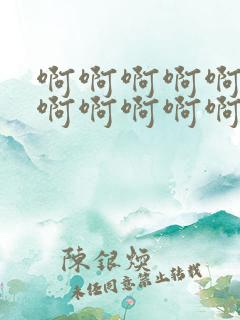 啊啊啊啊啊
啊啊啊啊啊
陳銀煥
未經同意禁止轉載